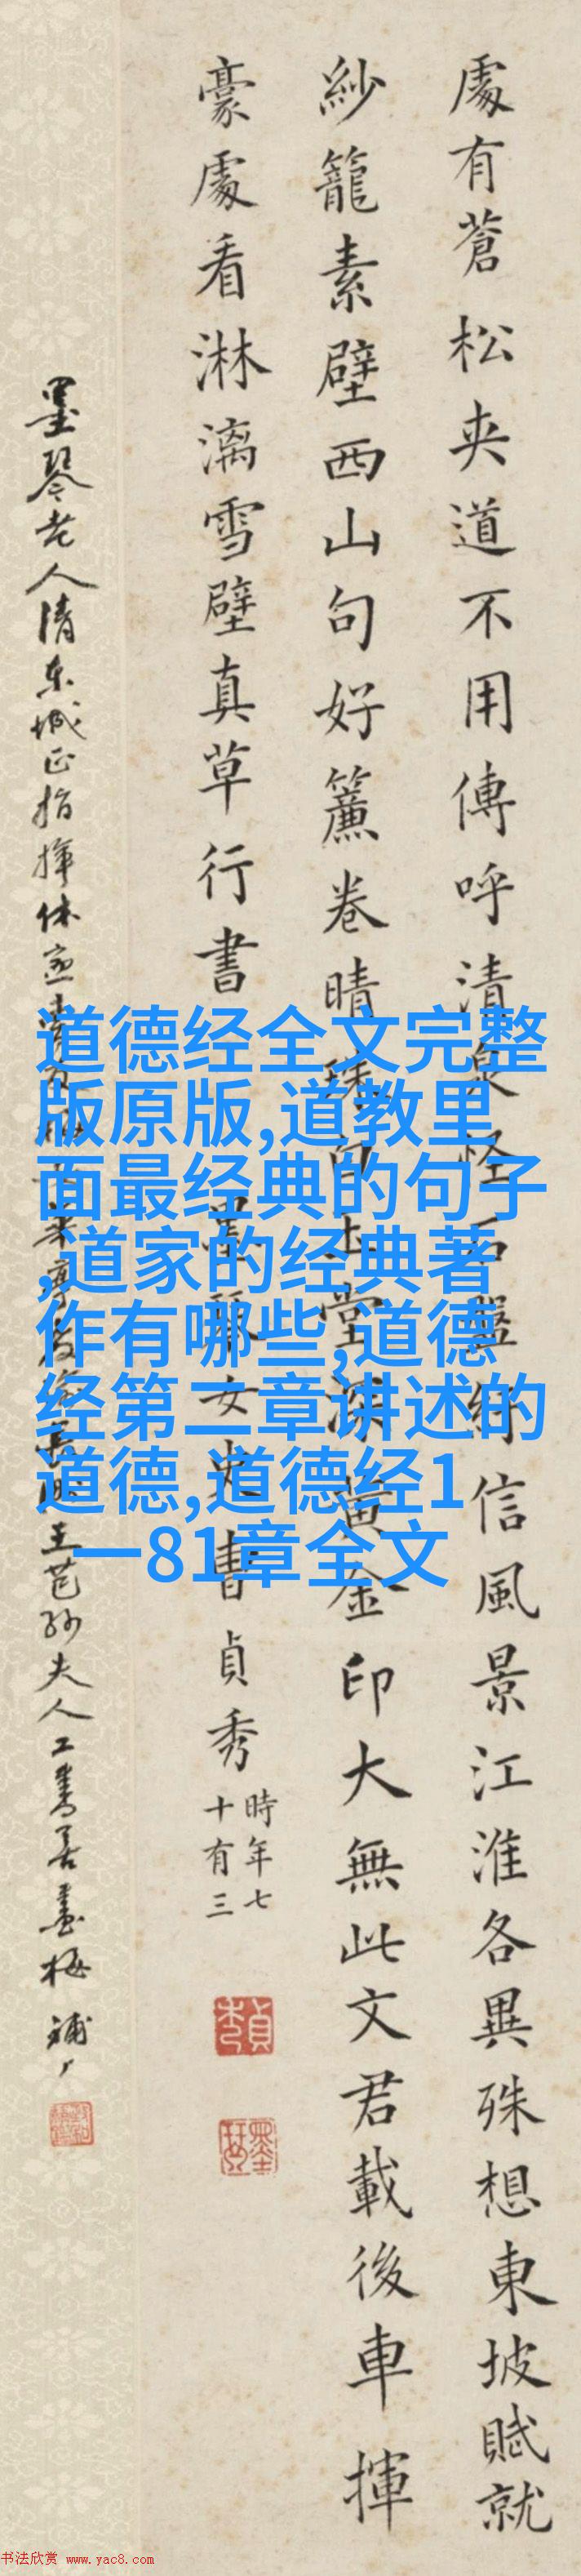 處有蒼松夾道不用傳呼清泉怪石盤紆信風景江淮各異殊想東坡賦就
紗籠素壁西山句好簾卷晴珠白玉堂深黃金印大無此文君載後車揮
豪處看淋漓雪壁真草行書
墨琴女史曹貞秀
時年七
十有三
貞秀
墨琴
墨琴老人清東城正指揮休 王芑孫夫人工書善畫梅
道德经全文完整
版原版,道教里
面最经典的句子
,道家的经典著
作有哪些,道德
经第二章讲述的
道德,道德经1
一81章全文
书法欣赏 www.yac8.com